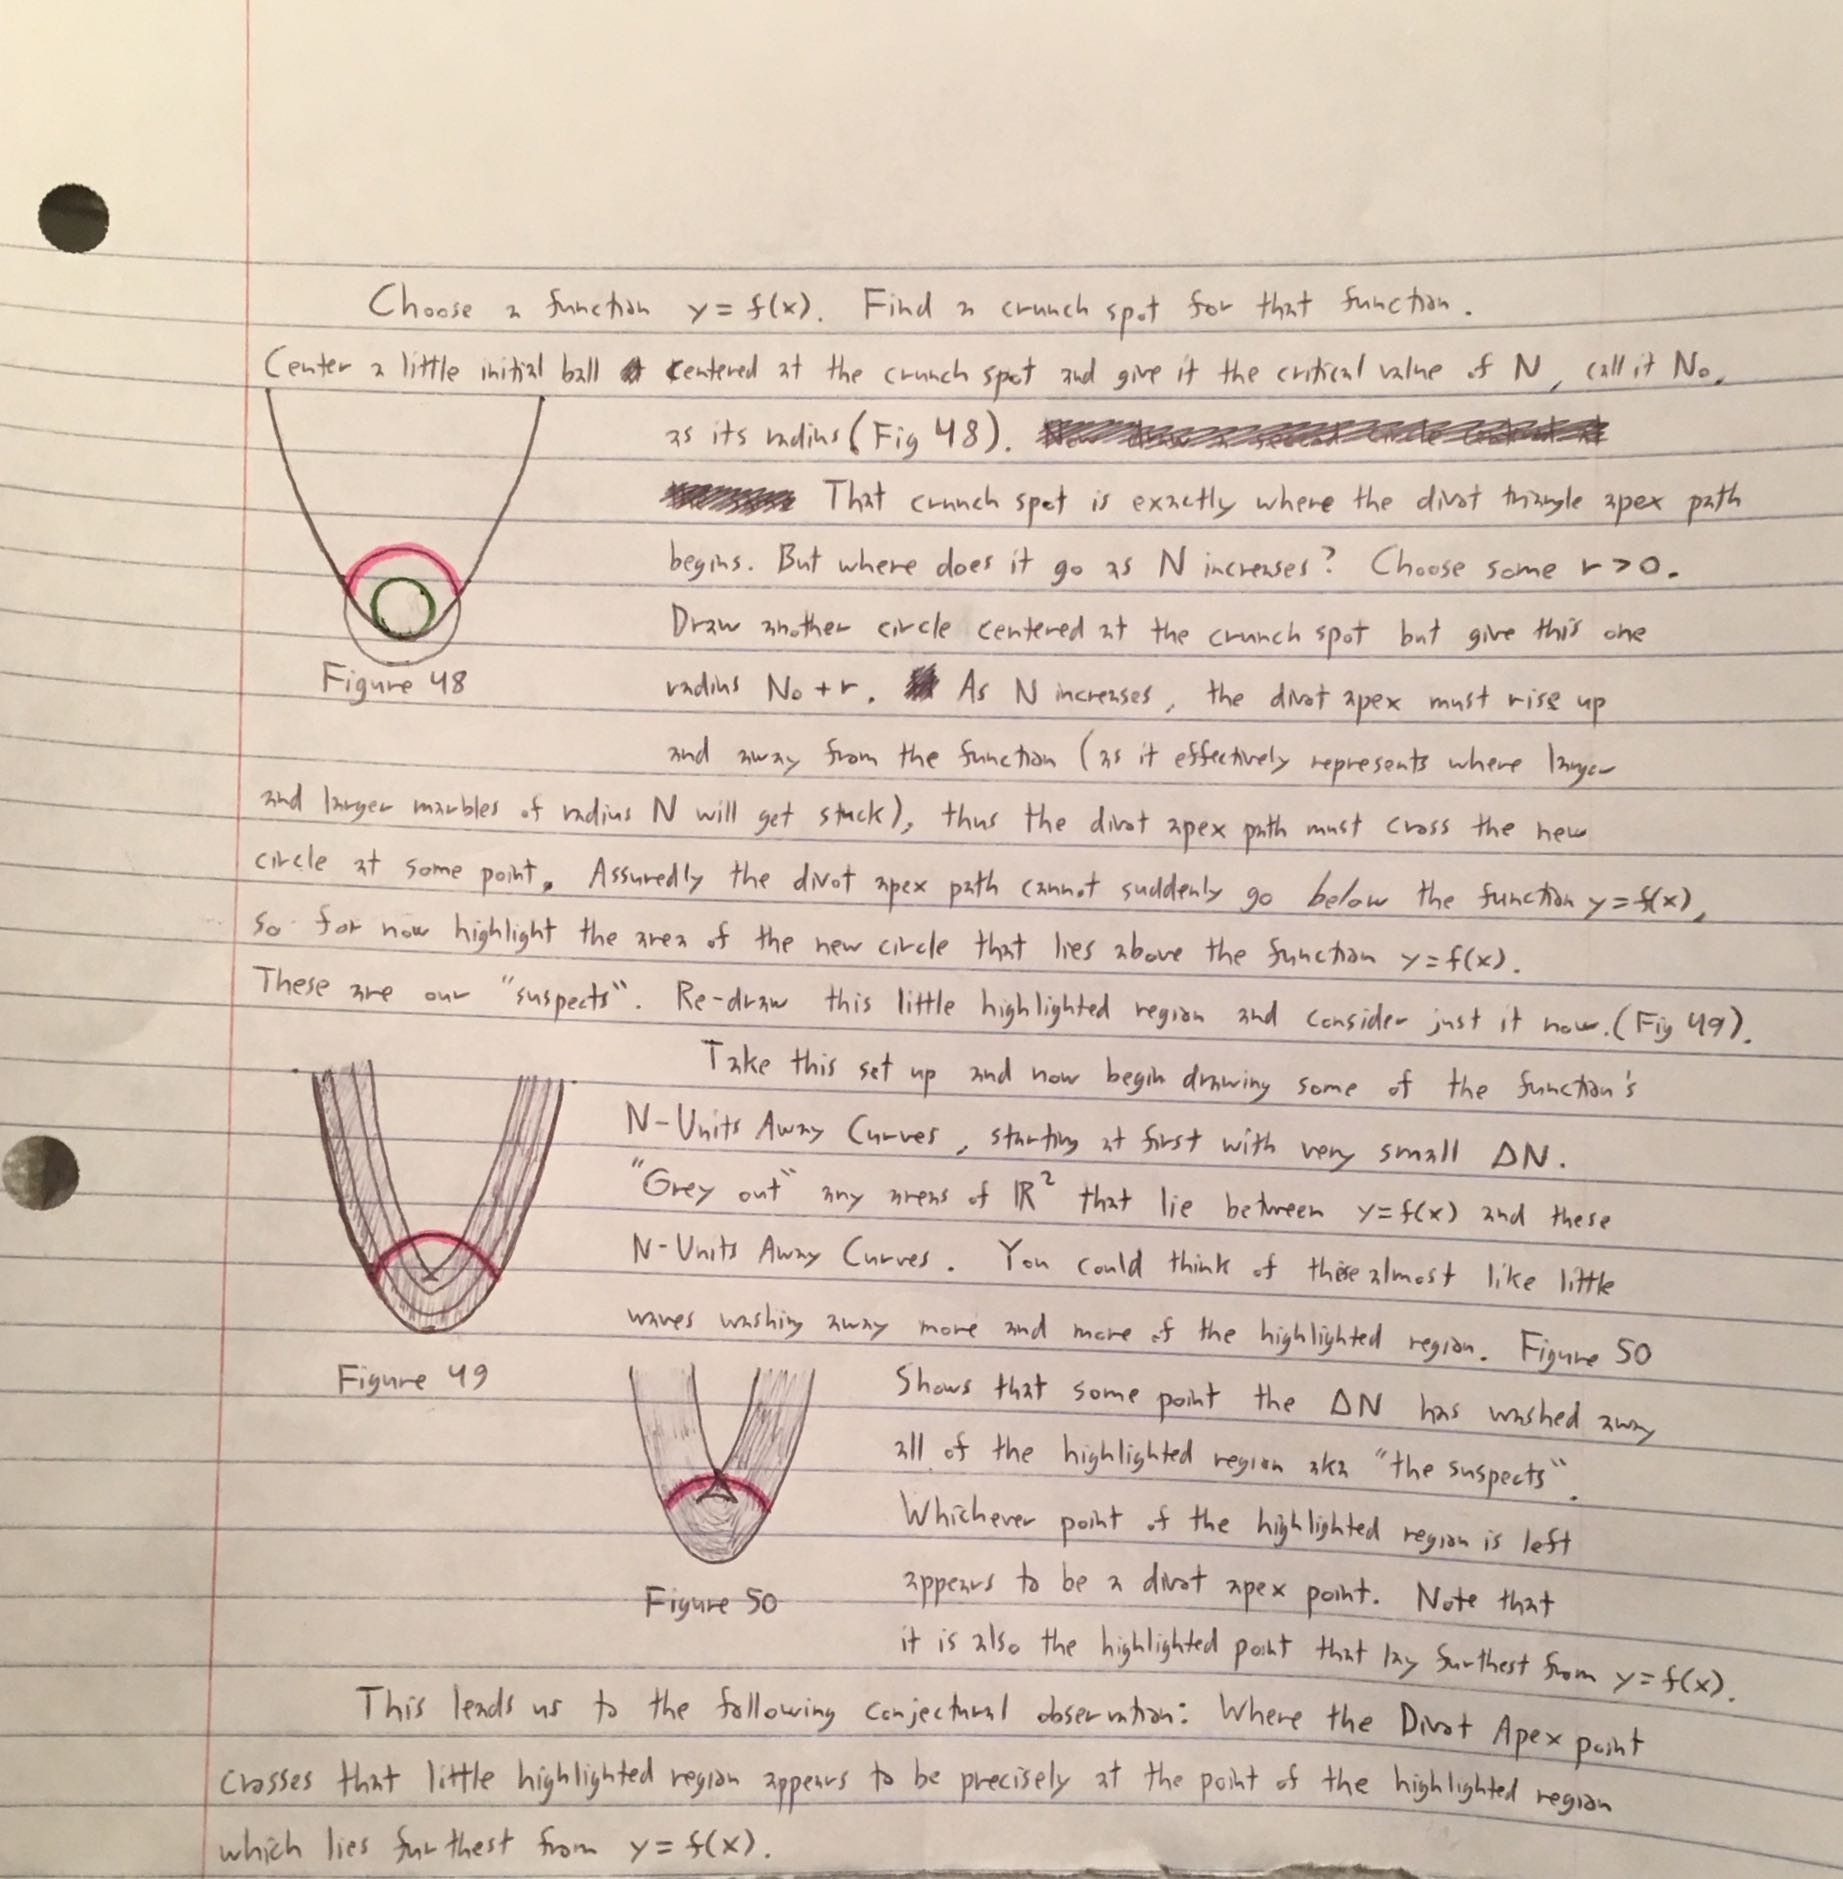 Choose a function y = f(x). Find a crunch spot for that function.
Center a little initial ball centered at the crunch spot and give it the critical value of N, call it N₀,
as its radius (Fig 48).
That crunch spot is exactly where the divot triangle apex path
begins. But where does it go as N increases? Choose some r > 0.
Draw another circle centered at the crunch spot but give this one
Figure 48
radius N₀ + r. As N increases, the divot apex must rise up
and away from the function (as it effectively represents where larger
and larger marbles of radius N will get stuck), thus the divot apex path must cross the new
circle at some point. Assuredly the divot apex path cannot suddenly go below the function y = f(x),
so for now highlight the area of the new circle that lies above the function y = f(x).
These are our "suspects". Re-draw this little highlighted region and consider just it now. (Fig 49).
Take this set up and now begin drawing some of the function's
N-Units Away Curves, starting at first with very small ΔN.
"Grey out" any areas of ℝ² that lie between y = f(x) and these
N-Units Away Curves. You could think of these almost like little
waves washing away more and more of the highlighted region. Figure 50
Figure 49
Shows that some point the ΔN has washed away
all of the highlighted region aka "the suspects".
Whichever point of the highlighted region is left
appears to be a divot apex point. Note that
Figure 50
it is also the highlighted point that lay furthest from y = f(x).
This leads us to the following conjectural observation: Where the Divot Apex point
crosses that little highlighted region appears to be precisely at the point of the highlighted region
which lies furthest from y = f(x).